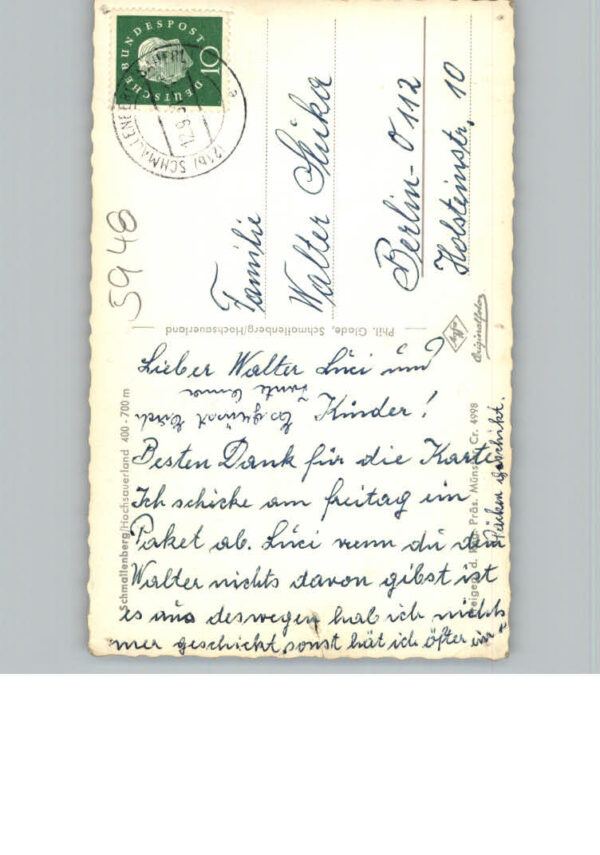 DEUTSCHE BUNDESPOST
10
(21b) SCHMALLENBERG
5948
Familie
Walter
Berlin-O 112
Holsteinstr. 10
Phil. Glade, Schmallenberg/Hochsauerland
Agfa
Originalfoto
Schmallenberg/Hochsauerland 400-700 m
Lieber Walter Lüci und
Kinder!
Es grüsst Euch
Tante
Besten Dank für die Karte
Ich schicke am freitag ein
Paket ab. Lüci wenn du dem
Walter nichts davon gibst ist
es aus deswegen hab ich nichts
mer geschickt, sonst hät ich öfter ein
Päcken geschikt.
Präs. Münster Cr. 4998